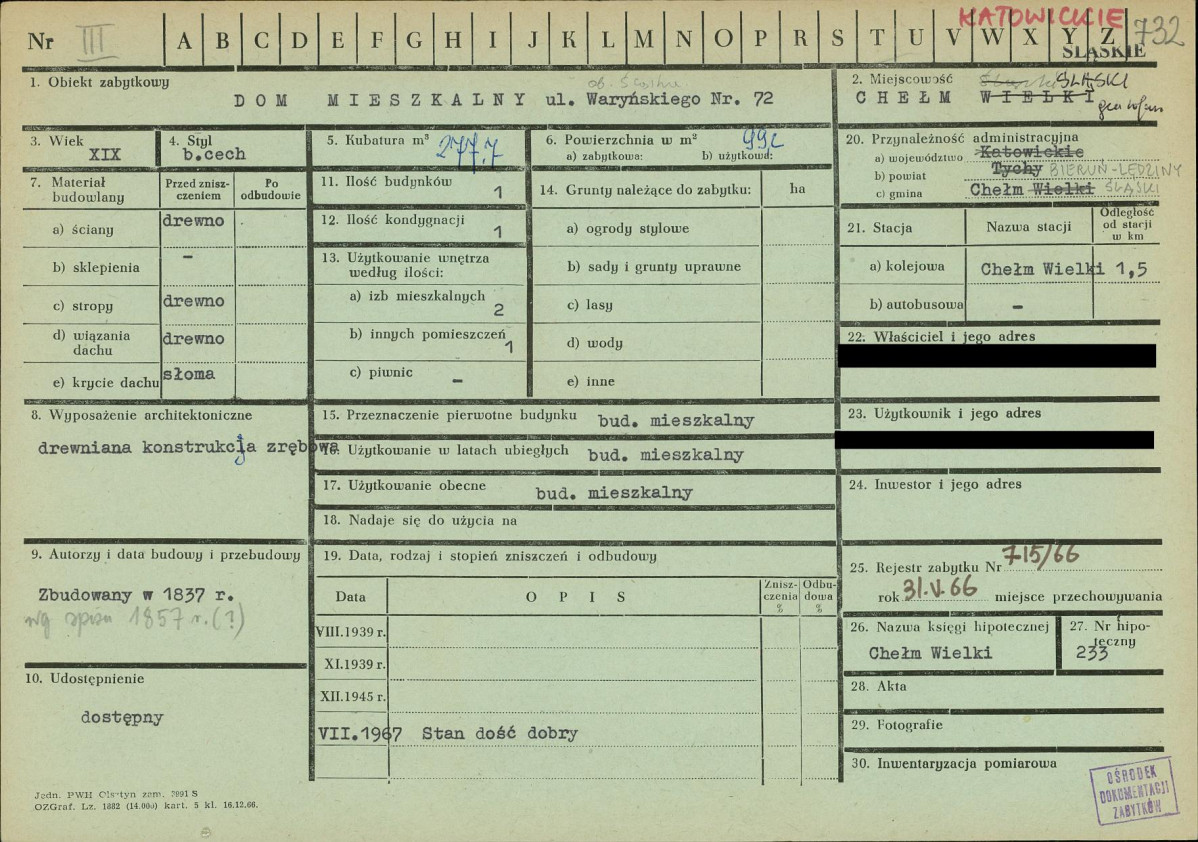 KATOWICKIE
Nr III A B C D E F G H I J K L M N O P R S T U V W X Y Z 732
ŚLĄSKIE
1. Obiekt zabytkowy
DOM MIESZKALNY ul. Waryńskiego Nr. 72
2. Miejscowość ŚLĄSKI
CHEŁM WIELKI
3. Wiek
XIX
4. Styl
b.cech
5. Kubatura m³
277,7
6. Powierzchnia w m²
a) zabytkowa: b) użytkowa:
20. Przynależność administracyjna
a) województwo Katowickie
b) powiat Tychy BIERUŃ-LĘDZINY
c) gmina Chełm Wielki ŚLĄSKI
7. Materiał budowlany
Przed zniszczeniem
Po odbudowie
a) ściany drewno
b) sklepienia –
c) stropy drewno
d) wiązania dachu drewno
e) krycie dachu słoma
11. Ilość budynków 1
12. Ilość kondygnacji 1
13. Użytkowanie wnętrza
według ilości:
a) izb mieszkalnych 2
b) innych pomieszczeń 1
c) piwnic –
14. Grunty należące do zabytku: ha
a) ogrody stylowe
b) sady i grunty uprawne
c) lasy
d) wody
e) inne
21. Stacja Nazwa stacji Odległość od stacji w km
a) kolejowa Chełm Wielki 1,5
b) autobusowa –
22. Właściciel i jego adres
23. Użytkownik i jego adres
24. Inwestor i jego adres
8. Wyposażenie architektoniczne
drewniana konstrukcja zrębowa
15. Przeznaczenie pierwotne budynku bud. mieszkalny
16. Użytkowanie w latach ubiegłych bud. mieszkalny
17. Użytkowanie obecne bud. mieszkalny
18. Nadaje się do użycia na
9. Autorzy i data budowy i przebudowy
Zbudowany w 1837 r.
wg spisu 1857 r. (?)
10. Udostępnienie
dostępny
19. Data, rodzaj i stopień zniszczeń i odbudowy
Data OPIS Zniszczenia % Odbudowa %
VIII.1939 r.
XI.1939 r.
XII.1945 r.
VII.1967 Stan dość dobry
25. Rejestr zabytku Nr 715/66
rok 31.V.66 miejsce przechowywania
26. Nazwa księgi hipotecznej
Chełm Wielki
27. Nr hipoteczny
233
28. Akta
29. Fotografie
30. Inwentaryzacja pomiarowa
OŚRODEK
DOKUMENTACJI
ZABYTKÓW
Jedn. PWH Olsztyn zam. 7991 S
OZGraf. Lz. 1882 (14.000) kart. 5 kl. 16.12.66.